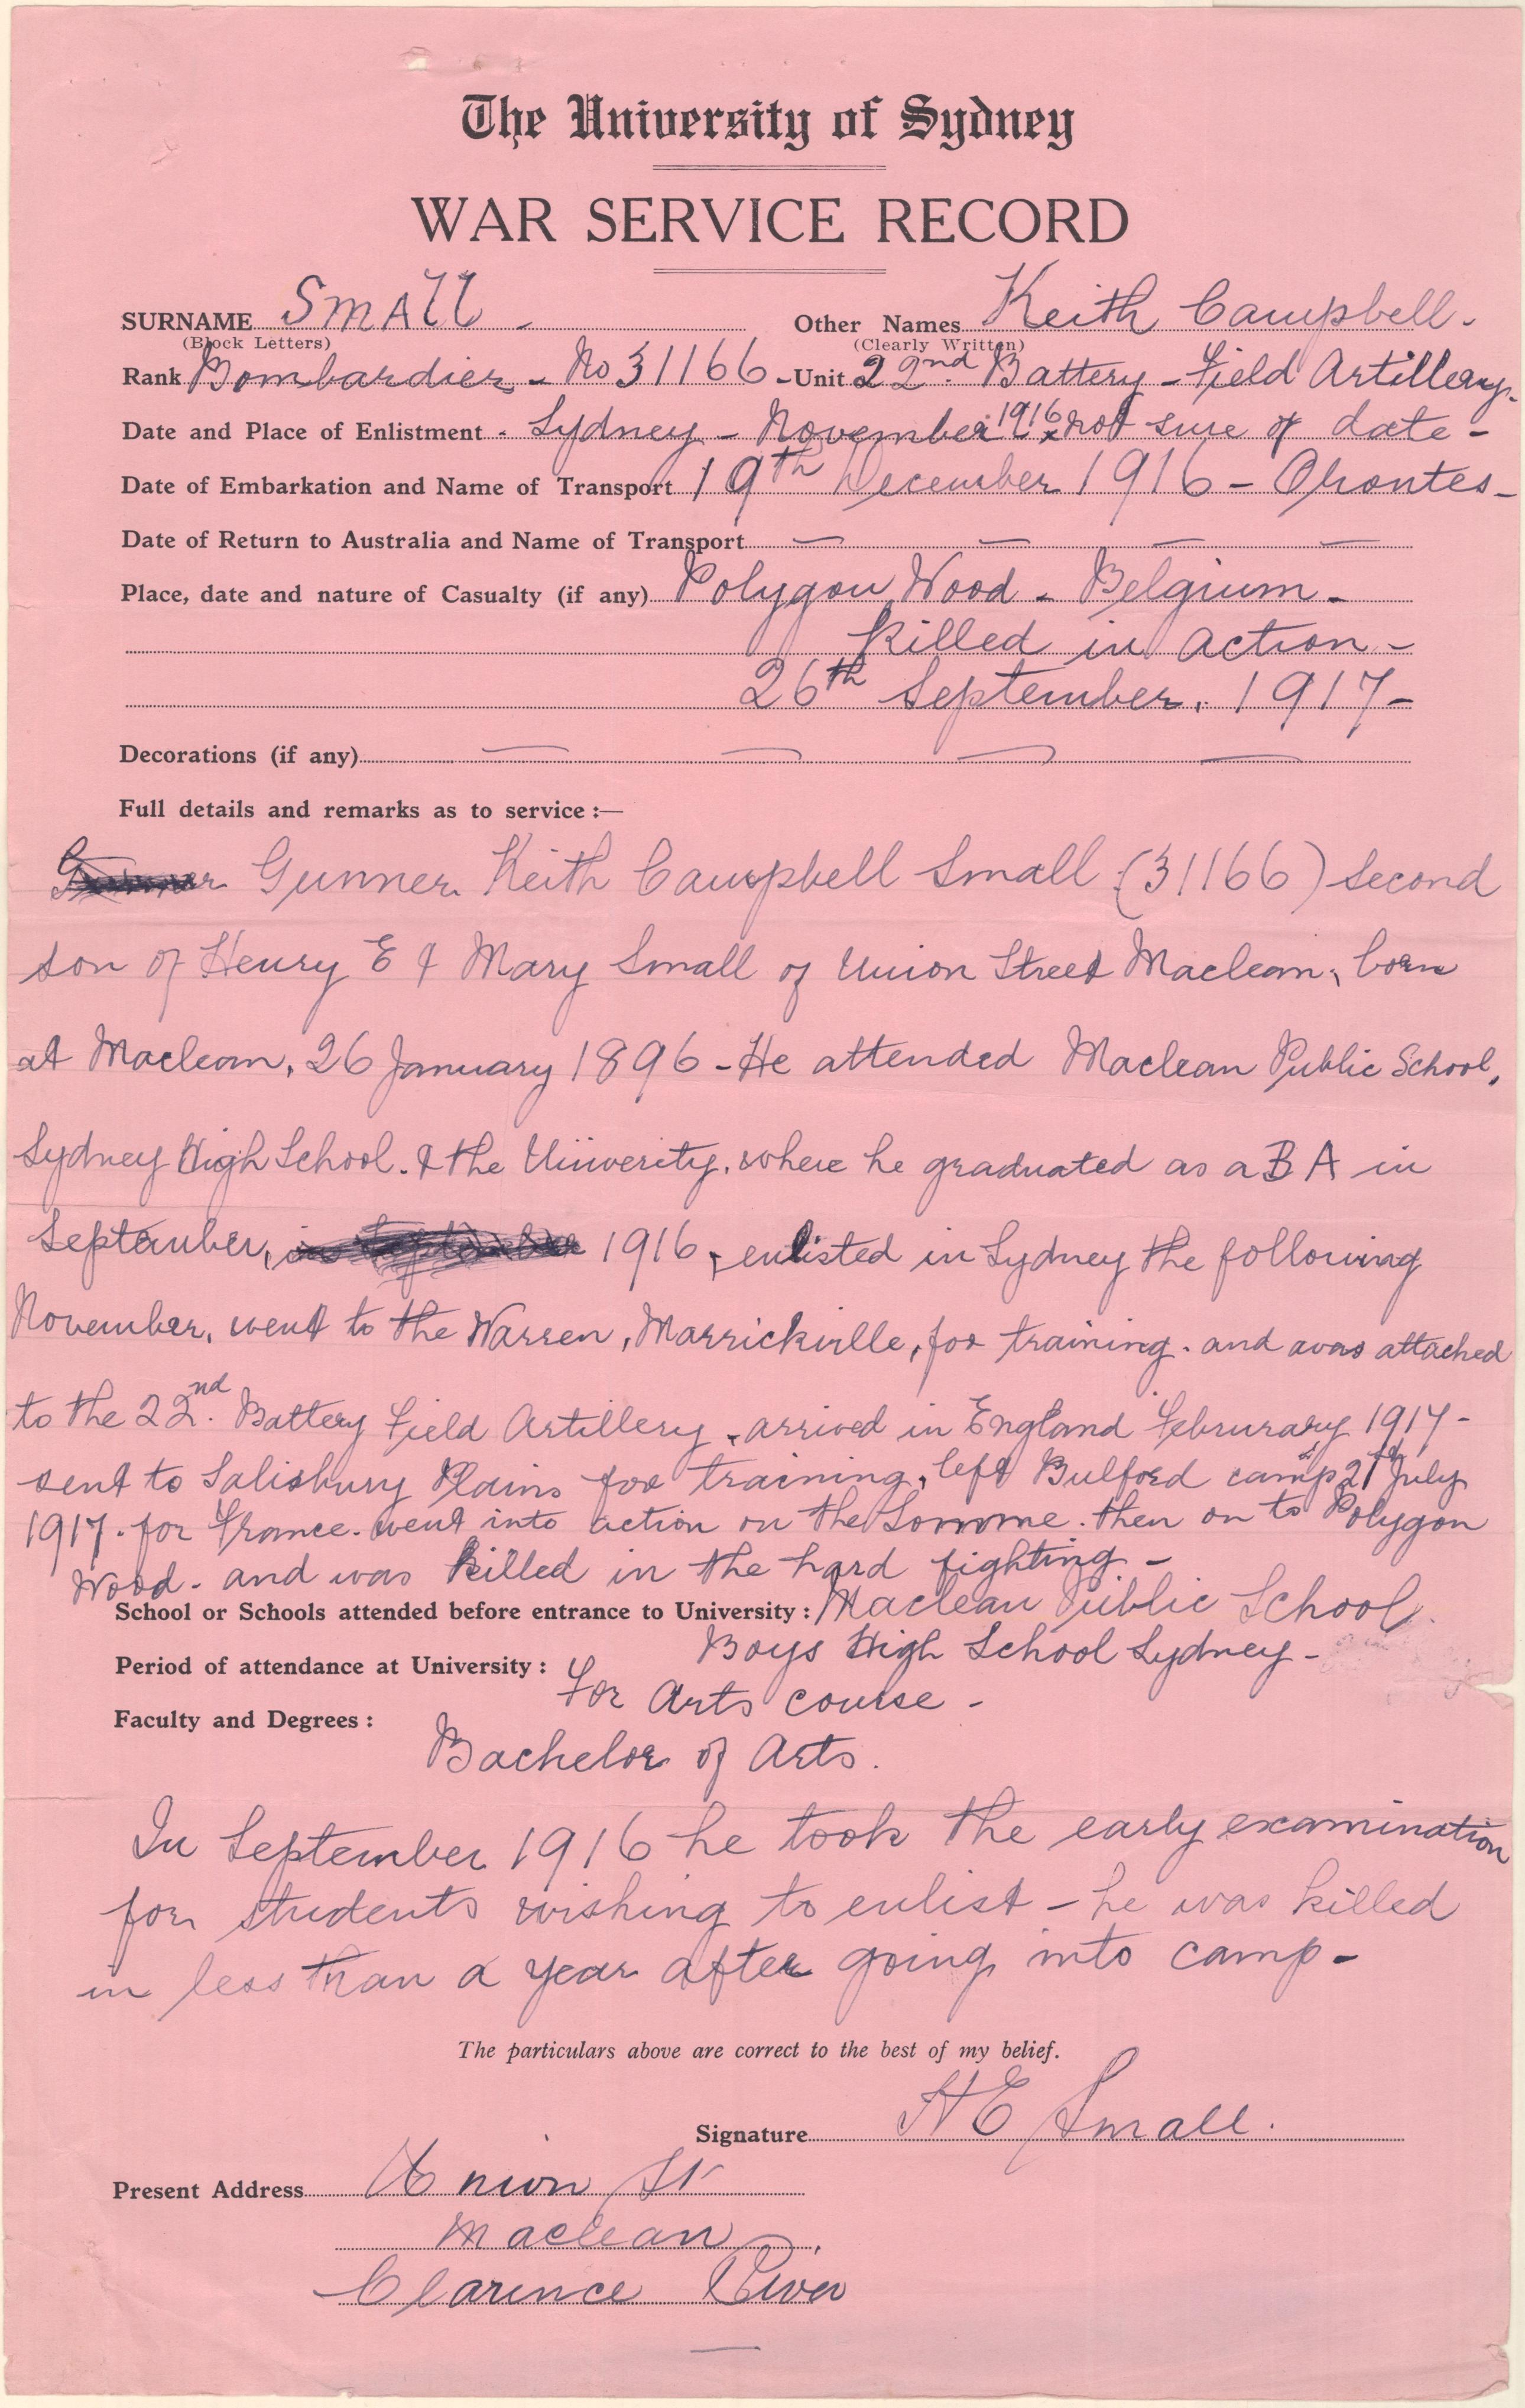 The University of Sydney
WAR SERVICE RECORD
SURNAME SMALL - Other Names Keith Campbell.
(Block Letters) (Clearly Written)
Rank Bombardier - No 31166 - Unit 22nd. Battery - Field Artillery.
Date and Place of Enlistment - Sydney - November 1916 x not sure of date -
Date of Embarkation and Name of Transport 19th December 1916 - Orontes -
Date of Return to Australia and Name of Transport — — — —
Place, date and nature of Casualty (if any) Polygon Wood - Belgium -
killed in action -
26th September. 1917 -
Decorations (if any) — — — —
Full details and remarks as to service :—
Gunner Keith Campbell Small (31166) second
son of Henry E & Mary Small of Union Street Maclean, born
at Maclean, 26 January 1896 - He attended Maclean Public School,
Sydney High School. & the Univerity, where he graduated as a B A in
September, 1916, enlisted in Sydney the following
November, went to the Warren, Marrickville, for training. and was attached
to the 22nd. Battery Field Artillery, arrived in England Februrary 1917 -
sent to Salisbury Plains for training, left Bulford camp 21st July
1917. for France. went into action on the Somme. then on to Polygon
Wood - and was killed in the hard fighting -
School or Schools attended before entrance to University : Maclean Public School.
Boys High School Sydney -
Period of attendance at University :
For Arts course -
Faculty and Degrees :
Bachelor of Arts.
In September 1916 he took the early examination
for students wishing to enlist - he was killed
in less than a year after going into camp -
The particulars above are correct to the best of my belief.
Signature H E Small.
Present Address Union St
Maclean.
Clarence River